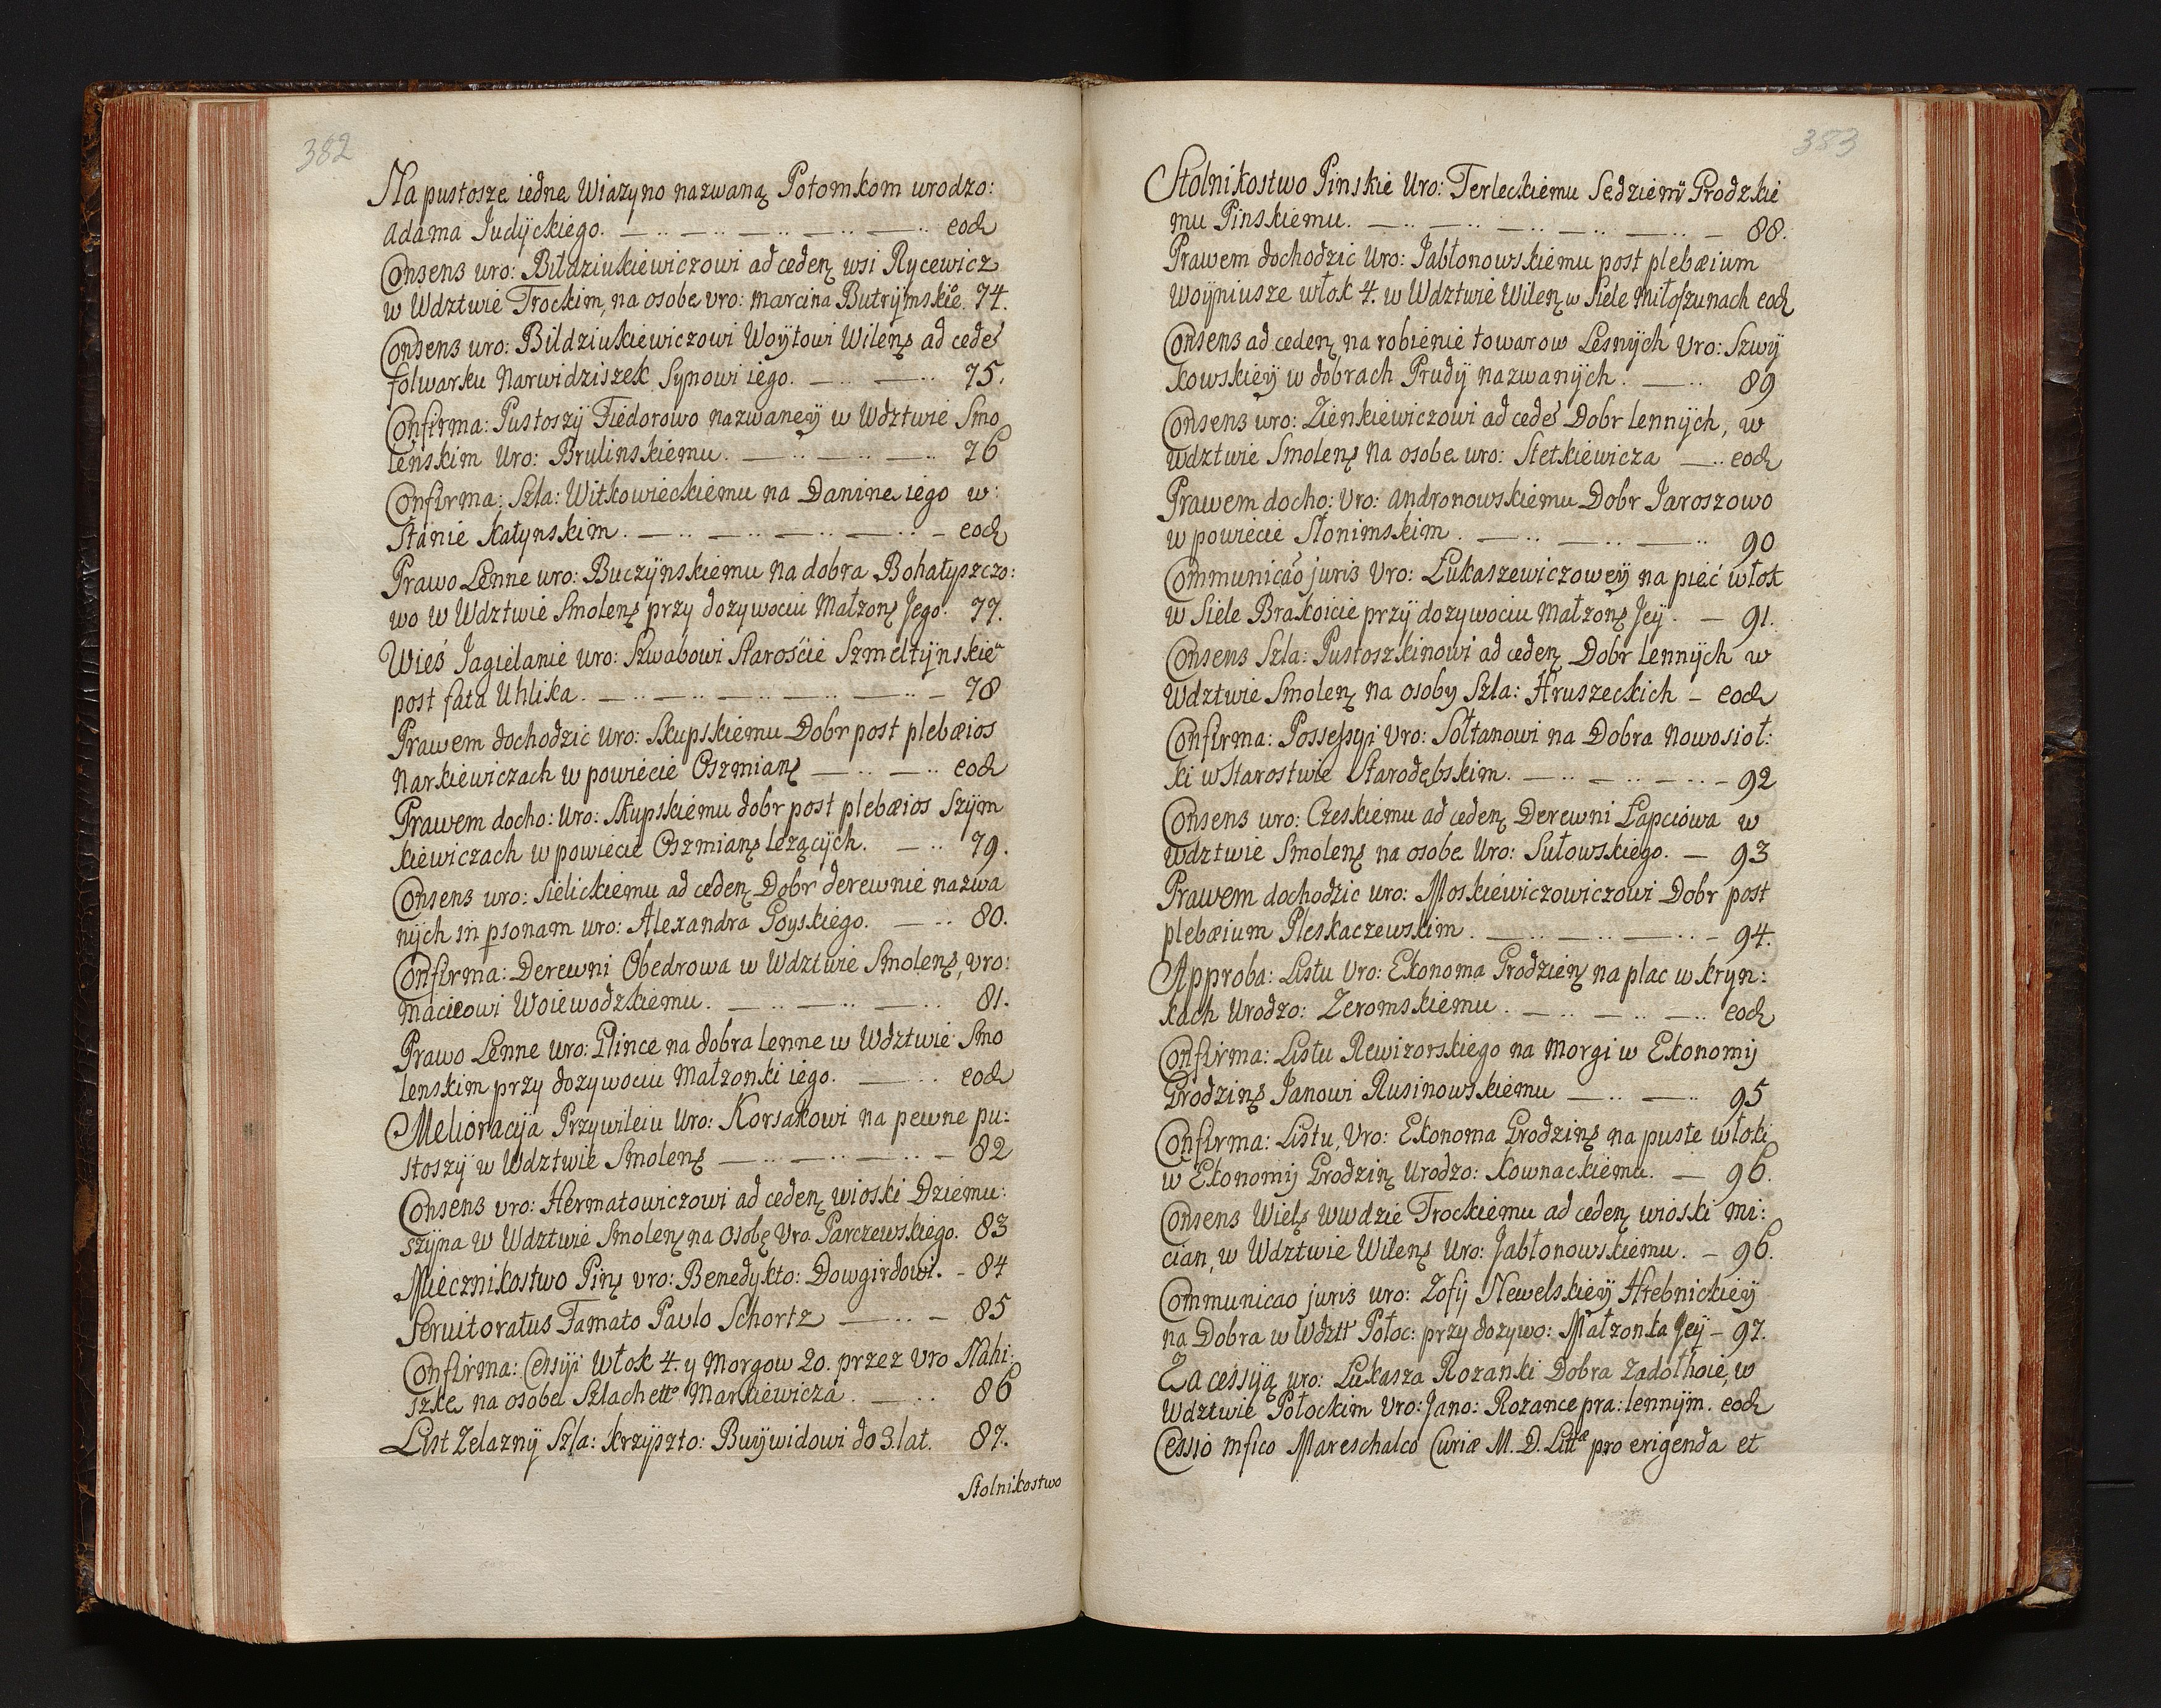 382
Na pustosze iedne Wiazyno nazwaną Potomkom urodzo:
Adama Judyckiego. — .. — .. — .. — .. — .. eod
Consens uro: Bildziukiewiczowi ad ceden wsi Rycewicz
w Wdztwie Trockim, na osobe uro: Marcina Butrymskie. 74.
Consens uro: Bildziukiewiczowi Woytowi Wilens ad cede
folwarku Narwidziszek Synowi iego. — .. — .. 75.
Confirma: Pustoszy Fiedorowo nazwaney w Wdztwie Smo
lenskim Uro: Brulinskiemu. — .. — .. — .. 76
Confirma: Szla: Witkowieckiemu na Danine iego w:
Stanie Katynskim. — .. — .. — .. — .. — eod
Prawo Lenne uro: Buczynskiemu na dobra Bohatyszczo:
wo w Wdztwie Smolens przy dozywociu Małzons Jego. 77.
Wieś Jagielanie uro: Szwabowi Staroście Szmeltynskie
post fata Uhlika. — .. — .. — .. — .. — .. — 78
Prawem dochodzic uro: Skupskiemu Dobr post plebæios
Narkiewiczach w powiecie Oszmians — .. — .. eod
Prawem docho: uro: Skupskiemu dobr post plebæios Szym
kiewiczach w powiecie Oszmians lezących. — .. 79.
Consens uro: Sielickiemu ad ceden Dobr derewnie nazwa
nych in psonam uro: Alexandra Goyskiego. — .. 80.
Confirma: Derewni Obedrowa w Wdztwie Smolens, uro:
Macieowi Woiewodzkiemu. — .. — .. — .. 81.
Prawo Lenne uro: Glince na dobra lenne w Wdztwie Smo
lenskim przy dozywociu Małzonki iego. — .. eod
Melioracyja Przywileiu Uro: Korsakowi na pewne pu:
stoszy w Wdztwie Smolens — .. — .. — .. — 82
Consens uro: Hermatowiczowi ad ceden wioski Dziemu:
szyna w Wdztwie Smolens na Osobę Uro. Parczewskiego. 83
Miecznikostwo Pins uro: Benedykto: Dowgirdowi. - 84
Seruitoratus Famato Paulo Schortz — .. — 85
Confirma: Cessyi włok 4. y Morgow 20. przez Uro Nahi:
szke na osobe Szlachetto Markiewicza. — .. 86
List Zelazny Szla: Krzyszto: Buywidowi do 3. lat. 87.
Stolnikostwo
383
Stolnikostwo Pinskie Uro: Terleckiemu Sedziemu Grodzkie
mu Pinskiemu. — .. — .. — .. — .. — .. — 88.
Prawem dochodzic Uro: Jabłonowskiemu post plebæium
Woyniusze włok 4. w Wdztwie Wilens w Siele Miłoszunach eod
Consens ad ceden na robienie towarow Lesnych Uro: Szwy
kowskiey w dobrach Prudy nazwanych. — .. 89
Consens uro: Zienkiewiczowi ad cede Dobr lennych, w
Wdztwie Smolens Na osobe uro: Stetkiewicza — .. eod
Prawem docho: Uro: Andronowskiemu Dobr Jaroszowo
w powiecie Słonimskim. — .. — .. — .. 90
Communicao juris Uro: Łukaszewiczowey na pięć włok
w Siele Brakoicie przy dozywociu Małzons Jey. — 91.
Consens Szla: Pustoszkinowi ad ceden Dobr lennych w
Wdztwie Smolens na osoby Szla: Hruszeckich — eod
Confirma: Possessyi Uro: Sołtanowi na Dobra Nowosioł:
ki w Starostwie Starodębskim. — .. — .. — .. — 92
Consens uro: Czeskiemu ad ceden Derewni Łapciowa w
Wdztwie Smolens na osobe Uro: Sułowskiego. — 93
Prawem dochodzic uro: Moskiewiczowiczowi Dobr post
plebæium Pleskaczewskim. — .. — .. — .. — 94.
Approba: Listu Uro: Ekonoma Grodzien na plac w Kryn:
kach Urodzo: Zeromskiemu. — .. — .. — .. eod
Confirma: Listu Rewizorskiego na Morgi w Ekonomij
Grodzins Janowi Rusinowskiemu — .. — .. 95
Confirma: Listu, Uro: Ekonoma Grodzins na puste włoki
w Ekonomij Grodzins Urodzo: Kownackiemu. — 96.
Consens Wiels wwdzie Trockiemu ad ceden wioski mi:
cian, w Wdztwie Wilens Uro: Jabłonowskiemu. — 96.
Communicao juris uro: Zofij Newelskiey Hrebnickiey
na Dobra w Wdztt Połoc: przy dozywo: Małzonka Jey - 97.
Za cessyją uro: Łukasza Rozanki Dobra Zadołhoie, w
Wdztwie Połockim Uro: Jano: Rozance pra: lennym. eod
Cessio mfico Mareschalco Curiæ M. D. Littæ pro erigenda et